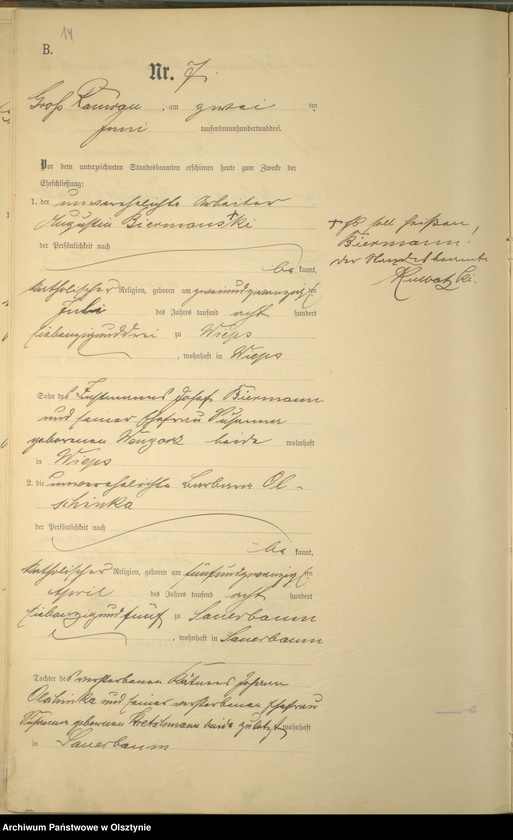 14
B.
Nr. 7.
Groß Ramsau, am zwei ten
Juni tausendneunhundertunddrei.
Vor dem unterzeichneten Standesbeamten erschienen heute zum Zwecke der
Eheschließung:
1. der unverehelichte Arbeiter
Augustin Biermanski +
der Persönlichkeit nach
be kannt,
katholischer Religion, geboren am zweiundzwanzigsten
des Jahres tausend acht hundert
siebenzigunddrei zu Wieps
, wohnhaft in Wieps
+ Es soll heißen,
Biermann.
Der Standesbeamte
Sohn des Instmannes Josef Biermann
und seiner Ehefrau Susanna
geborenen beide wohnhaft
in Wieps
2. die unverehelichte Barbara Ol-
schinka
der Persönlichkeit nach
be kannt,
katholischer Religion, geboren am fünfundzwanzigsten
April des Jahres tausend acht hundert
siebenzigundfünf zu Sauerbaum
, wohnhaft in Sauerbaum
Tochter des verstorbenen Kätners Johann
Olschinka und seiner verstorbenen Ehefrau
Susanna geborenen beide zuletzt wohnhaft
in Sauerbaum
Archiwum Państwowe w Olsztynie